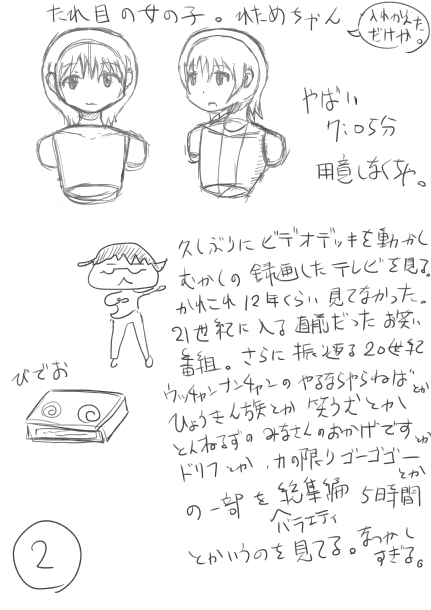 たれ目の女の子。れためちゃん
入れかえた
だけか。
やばい
7:05分
用意しなくちゃ。
久しぶりにビデオデッキを動かし
むかしの録画したテレビを見る。
かれこれ12年くらい見てなかった。
21世紀に入る直前だったお笑い
番組。さらに振り返る20世紀
ウッチャンナンチャンのやるならやらねばとか
ひょうきん族とか笑う犬とか
とんねるずのみなさんのおかげですとか
ドリフとか、力の限りゴーゴゴーとか
の一部を総集編5時間
バラエティ
とかいうのを見てる。なつかし
すぎる。
びでお
2